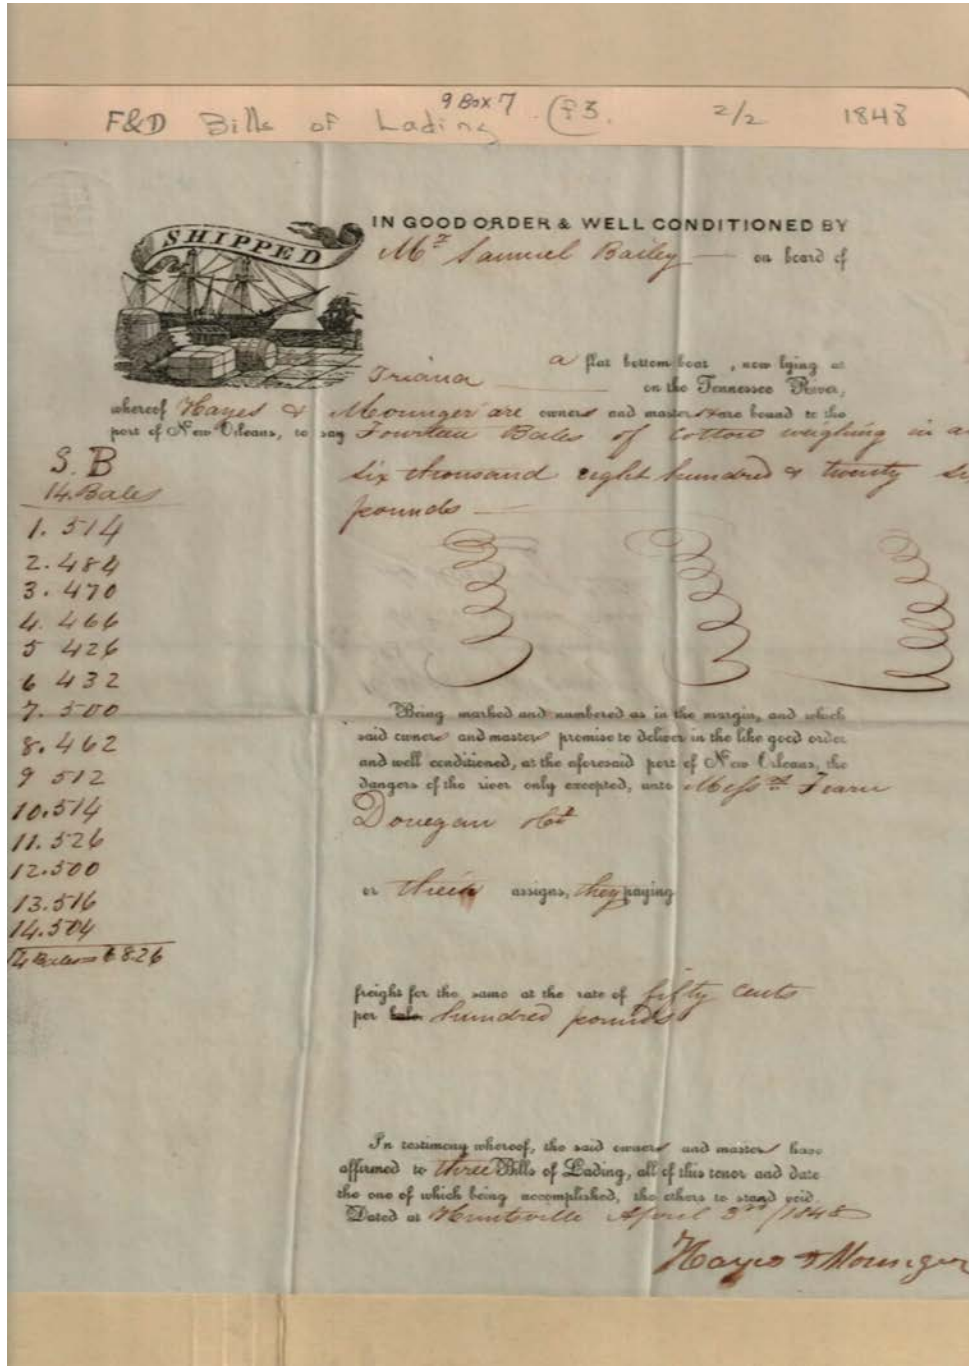 9 Box 7
F&D Bills of Lading (f3. 2/2 1848
SHIPPED
IN GOOD ORDER & WELL CONDITIONED BY
Mr Samuel Bailey on board of
a flat bottom boat, now lying at
Triana on the Tennessee River,
whereof Hayes & Mounger are owners and masters are bound to the
port of New Orleans, to say Fourteen Bales of Cotton weighing in a
six thousand eight hundred & twenty
pounds
S. B
14. Bales
1. 514
2. 484
3. 470
4. 466
5 426
6 432
7. 500
8. 462
9 512
10. 514
11. 526
12. 500
13. 516
14. 504
14 Bales 6826
Being marked and numbered as in the margin, and which
said owners and masters promise to deliver in the like good order
and well conditioned, at the aforesaid port of New Orleans, the
dangers of the river only excepted, unto Messrs Fearn
Donegan & Co
or their assigns, they paying
freight for the same at the rate of fifty cents
per bale hundred pounds
In testimony whereof, the said owners and masters have
affirmed to three Bills of Lading, all of this tenor and date
the one of which being accomplished, the others to stand void.
Dated at Huntsville April 3rd /1848
Hayes & Mounger